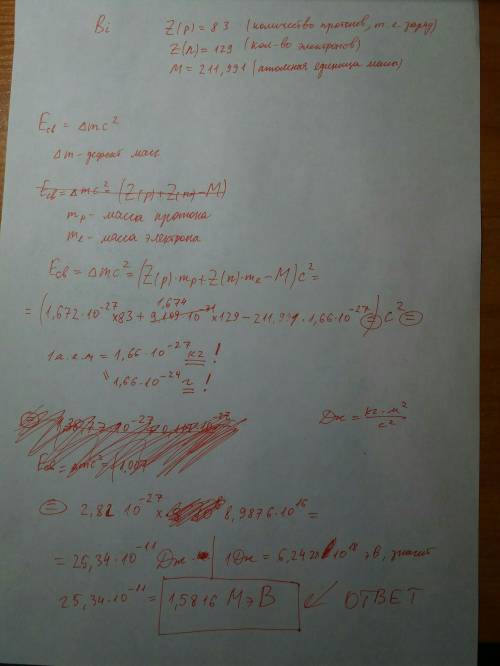 Bi Z(p) = 83 (количество протонов, т.е. заряд)
Z(n) = 129 (кол-во электронов)
M = 211,991 (атомная единица массы)
Eсв = Δmc²
Δm - дефект масс
Eсв = Δmc² = (Z(p)+Z(n)-M)
mp - масса протона
me - масса электрона
Eсв = Δmc² = (Z(p)·mp+Z(n)·me-M)c² =
1,674
= (1,672·10⁻²⁷×83+9,109·10⁻³¹×129-211,991·1,66·10⁻²⁷)=c²=
1 а.е.м = 1,66·10⁻²⁷ кг !
" 1,66·10⁻²⁴ г !
Дж = кг·м²/с²
Eсв = Δmc² =
= 2,82·10⁻²⁷ × 8,9876·10¹⁶ =
= 25,34·10⁻¹¹ Дж | 1Дж = 6,242·10¹⁸ эВ, значит
25,34·10⁻¹¹ = 1,5816 МэВ ОТВЕТ